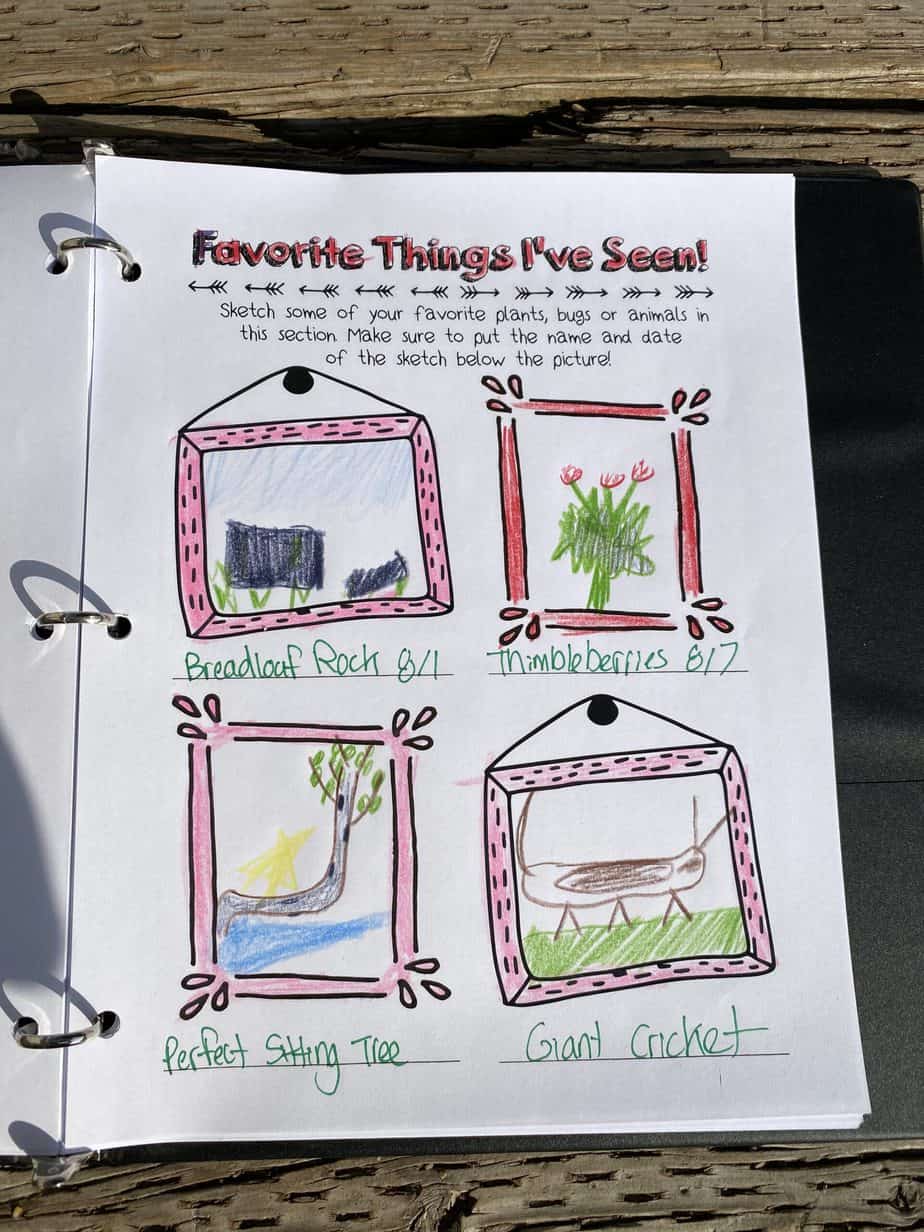 Favorite Things I've Seen!
Sketch some of your favorite plants, bugs or animals in
this section. Make sure to put the name and date
of the sketch below the picture!
Breadloaf Rock 8/1
Thimbleberries 8/7
Perfect Sitting Tree
Giant Cricket